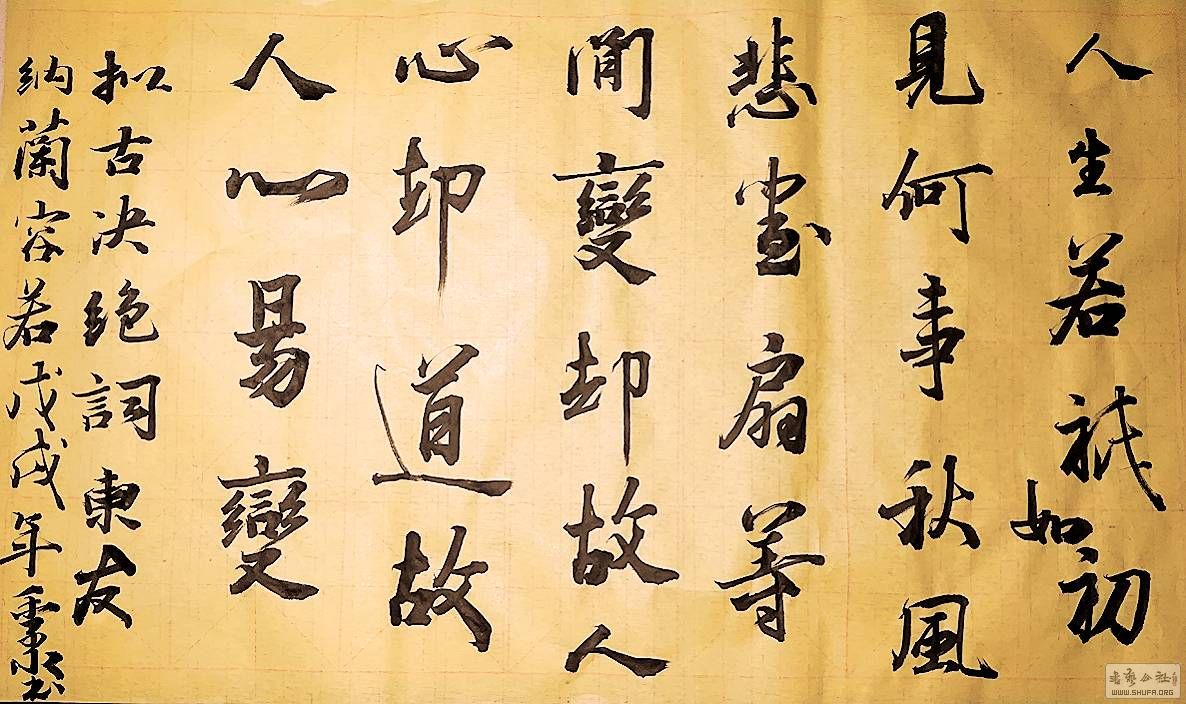 人生若祇如初
見何事秋風
悲畫扇等
閒變却故人
心却道故
人心易變
拟古决絶詞東友
納蘭容若戊戌年書
书藝公社
WWW.SHUFA.ORG